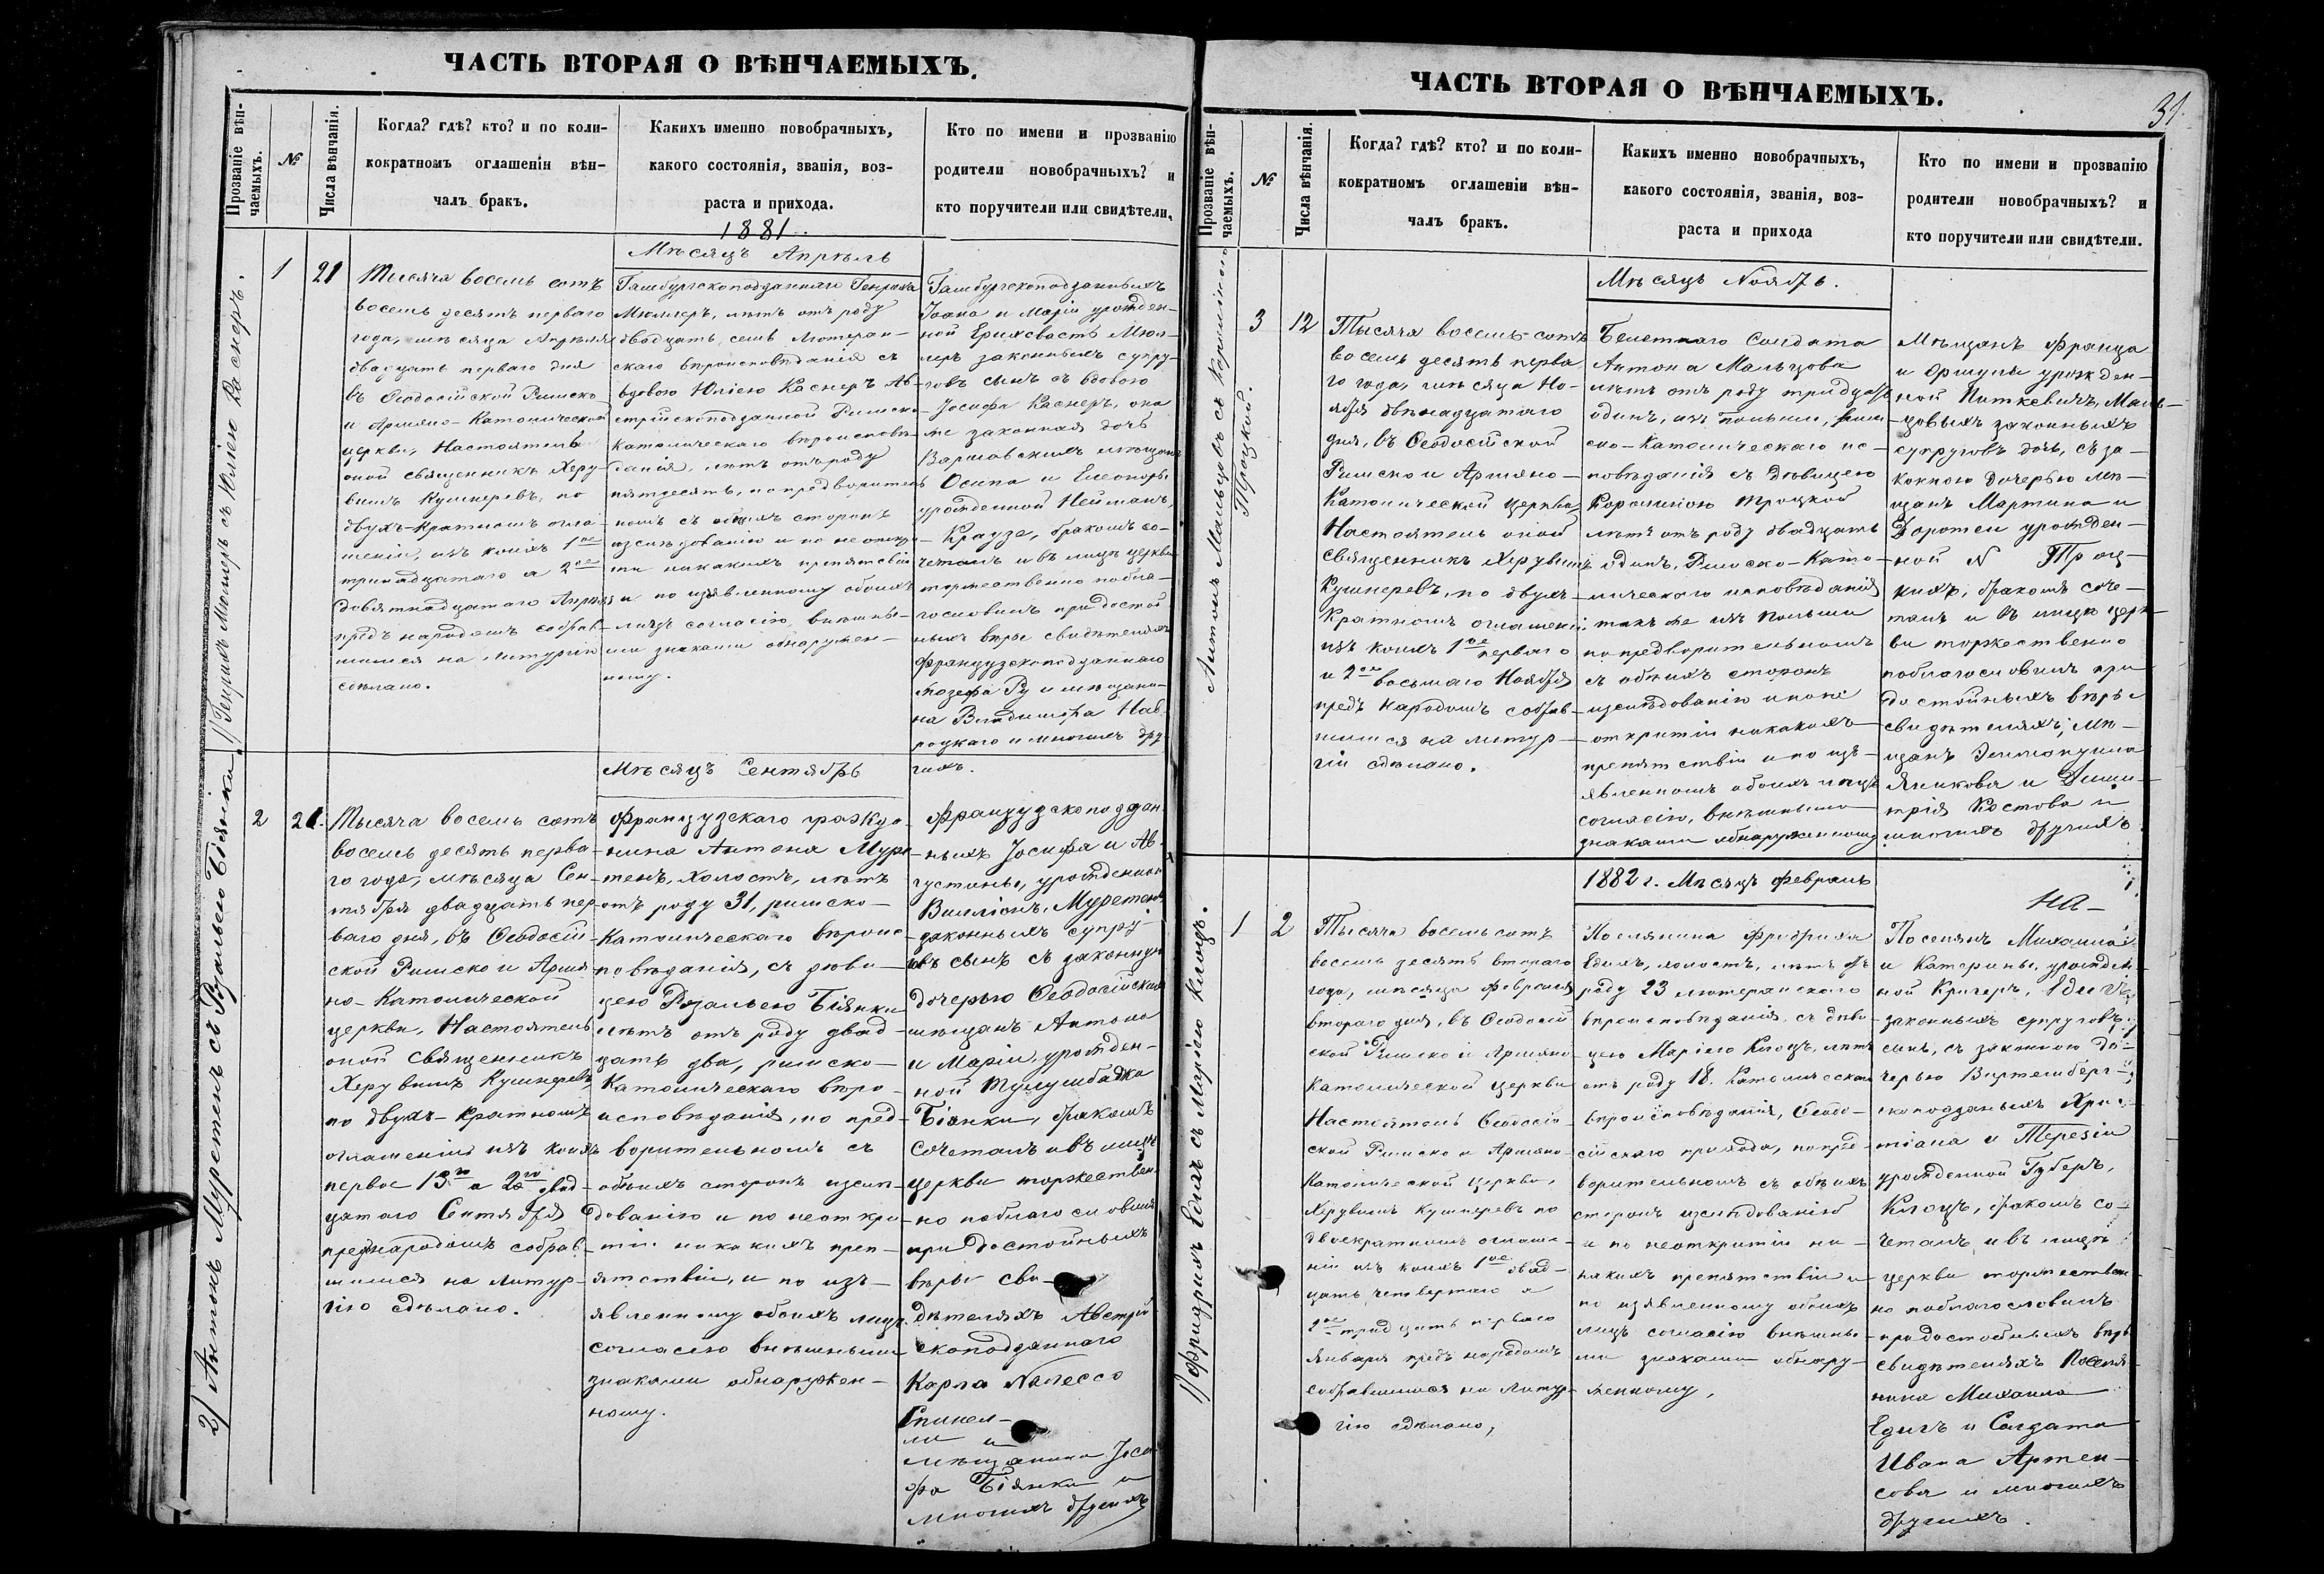 ЧАСТЬ ВТОРАЯ О ВѢНЧАЕМЫХЪ.
Прозваніе вѣн-
чаемыхъ.
№
Числа вѣнчанія.
Когда? гдѣ? кто? и по коли-
кократномъ оглашеніи вѣн-
чалъ бракъ.
Какихъ именно новобрачныхъ,
какого состоянія, званія, воз-
раста и прихода.
Кто по имени и прозванію
родители новобрачныхъ? и
кто поручители или свидѣтели.
1881.
Мѣсяцъ Апрѣль
1) Генрихъ Мюллеръ съ Юліею Каснеръ.
1
21
Тысяча восемь сотъ
восемь десятъ перваго
года, мѣсяца Апрѣля
двадцать перваго дня
въ Ѳеодосійской Римско
и Армяно-Католической
церкви, Настоятель
оной священникъ Херу-
вимъ Кушнеревъ, по
двухъ-кратномъ огла-
шеніи, изъ коихъ 1ое
тринадцатаго а 2ое
девятнадцатаго Апрѣля
предъ народомъ собрав-
шимся на литургію
сдѣлано.
Гамбургскоподданнаго Генриха
Мюллеръ, лѣтъ отъ роду
двадцать семь Лютеран-
скаго вѣроисповѣданія съ
вдовою Юліею Каснеръ Ав-
стрійскоподданной Римско
Католическаго вѣроисповѣ-
данія, лѣтъ отъ роду
пятдесятъ, по предваритель-
номъ съ обѣихъ сторонъ
изслѣдованію и по не откры-
ти никакихъ препятствій
и по изъявленному обоихъ
лицъ согласію, внѣшны-
ми знаками обнаружен-
ному.
Гамбургскоподданныхъ
Іоана и Маріи урожден-
ной Мюл-
леръ законныхъ супру-
говъ сынъ съ вдовою
Іосифа Каснеръ, она
же законная дочь
Варшавскихъ мѣщанъ
Осипа и Елеоноры
урожденной Нейманъ,
Краузе, бракомъ со-
четалъ и въ лицѣ церкви
торжественно побла-
гословилъ при достой
ныхъ вѣры свидѣтеляхъ
Французскоподданнаго
Жозефа Ру и мѣщани-
на Владиміра Нав-
роцкаго и многихъ дру-
гихъ.
Мѣсяцъ Сентябрь
2) Антонъ Муретенъ съ Розальею Біянки
2
21.
Тысяча восемь сотъ
восемь десятъ перва-
го года, мѣсяца Сен-
тября двадцать пер-
ваго дня, въ Ѳеодосій-
ской Римско и Армя-
но-Католической
церкви, Настоятель
оной священникъ
Херувимъ Кушнеревъ
по двухъ-кратномъ
оглашеніи изъ коихъ
первое 13го а 2ое двад-
цатаго Сентября
предъ народомъ собрав-
шимся на литур-
гію сдѣлано.
Французскаго гражда-
нина Антона Муре-
тенъ, холостъ, лѣтъ
отъ роду 31, римско-
Католическаго вѣроис-
повѣданія, съ дѣви-
цею Розальею Біянки
лѣтъ отъ роду двад-
цать два, римско-
Католическаго вѣро-
исповѣданія, по пред-
варительномъ съ
обѣихъ сторонъ изслѣ-
дованію и по неоткры-
тіи никакихъ преп-
ятствій, и по изъ-
явленному обоихъ лицъ
согласію внѣшными
знаками обнаружен-
ному.
Французскоподдан-
ныхъ Іосифа и Ав-
густины, урожденной
Муретенъ
законныхъ супру-
говъ сынъ съ законную
дочерью Ѳеодосійскихъ
мѣщанъ Антона
и Маріи урожден-
ной
Біянки, бракомъ
сочеталъ и въ лицѣ
церкви торжествен-
но поблагословилъ
при достойныхъ
вѣры сви-
дѣтеляхъ Австрій-
скоподданнаго
Карла
Спинел-
ли и
мѣщанина Іоси-
фа Біянки и
многихъ другихъ
ЧАСТЬ ВТОРАЯ О ВѢНЧАЕМЫХЪ.
31.
Прозваніе вѣн-
чаемыхъ.
№
Числа вѣнчанія.
Когда? гдѣ? кто? и по коли-
кократномъ оглашеніи вѣн-
чалъ бракъ.
Какихъ именно новобрачныхъ,
какого состоянія, званія, воз-
раста и прихода
Кто по имени и прозванію
родители новобрачныхъ? и
кто поручители или свидѣтели.
Мѣсяцъ Ноябрь.
Антонъ Мальцовъ съ Каролиною
Троцкой.
3
12
Тысяча восемь-сотъ
восемь десятъ перва
го года, мѣсяца Но-
ября двѣнадцатаго
дня, въ Ѳеодосійской
Римско и Армяно-
Католической церкви,
Настоятель оной
Священникъ Херувимъ
Кушнеревъ, по двухъ-
кратномъ оглашеніи
изъ коихъ 1ое перваго
и 2ое восьмаго Ноября
предъ народомъ собрав-
шимся на литур-
гіи сдѣлано.
Билетнаго солдата
Антона Мальцова
лѣтъ отъ роду тридцать
одинъ, изъ Польши, Рим-
ско-Католическаго ис-
повѣданія съ дѣвицею
Каролиною Троцкой
лѣтъ отъ роду двадцать
одинъ, Римско-Като-
лическаго исповѣданія
такъ же изъ Польши
по предварительномъ
съ обѣихъ сторонъ
изслѣдованію и по не
открытіи никакихъ
препятствій и по изъ-
явленномъ обоихъ лицъ
согласію, внѣшными
знаками обнаруженному
Мѣщанъ Франца
и Оршулы урожден-
ной Питкевичъ, Маль-
цовыхъ законныхъ
супруговъ дочь, съ за-
конною дочерью мѣ-
щанъ Мартина и
Доротеи урожден-
ной N Троц-
кихъ, бракомъ соче-
талъ и въ лицѣ церк-
ви торжественно
поблагословилъ при
достойныхъ вѣры
свидѣтеляхъ, мѣ-
щанъ
Яникова и Дими-
трія Костова и
многихъ другихъ
1882 г. Мѣсяцъ Февраль
на-
1) Фридрихъ Едихъ съ Маріею Клоцъ.
1
2
Тысяча восемьсотъ
восемь десятъ втораго
года, мѣсяца Февраля
втораго дня, въ Ѳеодосій
ской Римско и Армяно
Католической церкви
Настоятель Ѳеодосій-
ской Римско и Армяно-
Католической церкви,
Херувимъ Кушнеревъ по
двоекратномъ оглаше-
ніи изъ коихъ 1ое двад-
цать четвертаго а
2ое тридцать перваго
Января предъ народомъ
собравшимся на литур-
гію сдѣлано,
Поселянина Фридриха
Едихъ, холостъ, лѣтъ отъ
роду 23 лютеранскаго
вѣроисповѣданія, съ дѣви-
цею Маріею Клоцъ, лѣтъ
отъ роду 18, Католическаго
вѣроисповѣданія, Ѳеодо-
сійскаго прихода, по пред-
варительномъ съ обѣихъ
сторонъ изслѣдованію
и по неоткрытіи ни-
какихъ препятствій и
по изъявленному обоихъ
лицъ согласію внѣшны-
ми знаками обнару-
женному,
Поселянъ Михаила
и Катерины, урожден-
ной Кригеръ, Едихъ
законныхъ супруговъ
сынъ, съ законною до-
черью Виртембергс-
коподданыхъ Хрис-
тіана и Терезіи
урожденной Губеръ,
Клоцъ, бракомъ со-
четалъ и въ лицѣ
церкви торжествен-
но поблагословилъ
при достойныхъ вѣры
свидѣтеляхъ Поселя-
нина Михаила
Едихъ и Солдата
Ивана Артен-
сова и многихъ
другихъ.